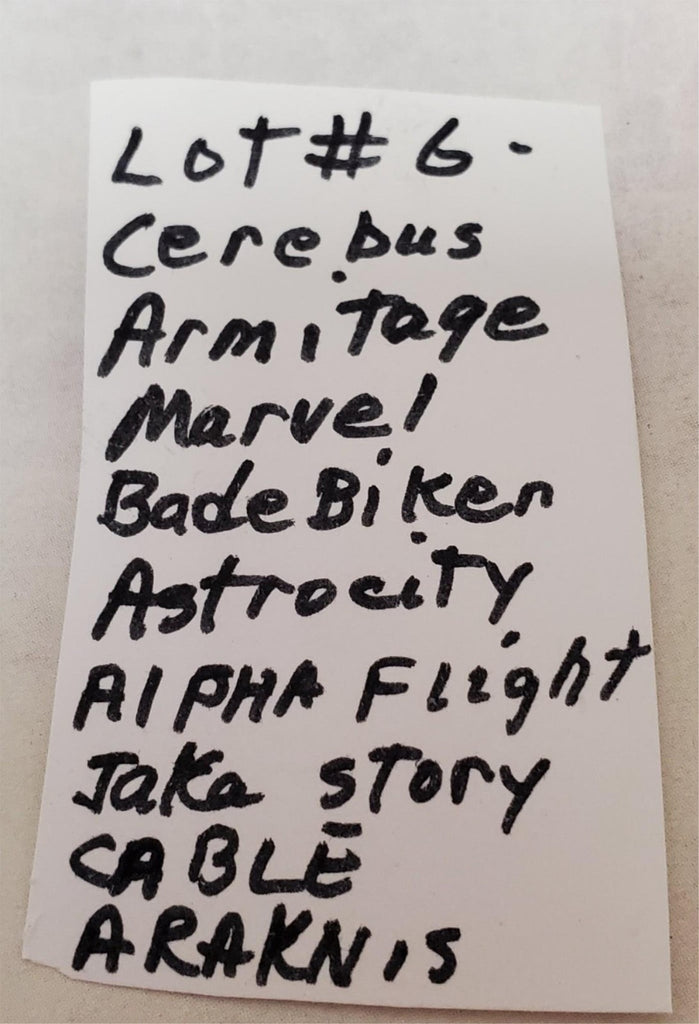 Lot # 6 -
Cerebus
Armitage
Marvel
Bade Biker
Astrocity
AlPHA Flight
Jaka story
CABLE
ARAKNIS